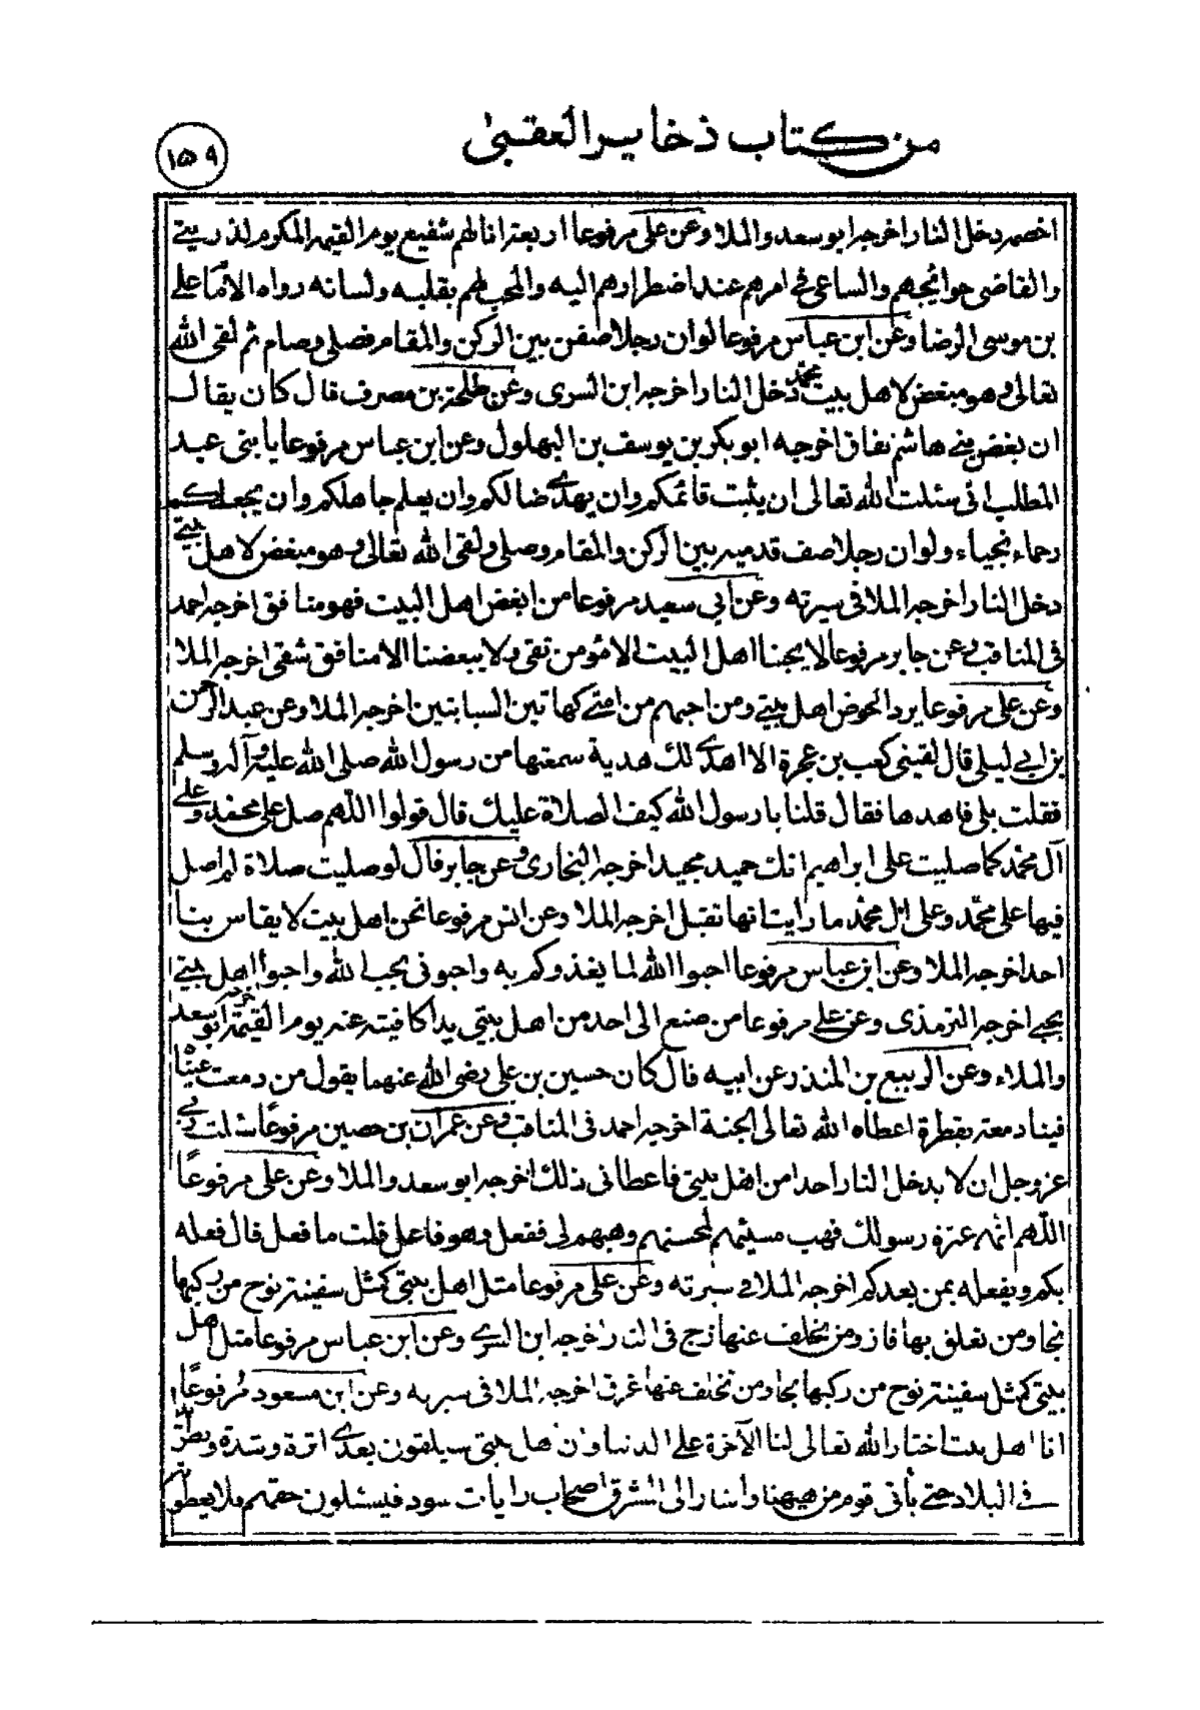 من كتاب ذخاير العقبى
١٥٩
اخصمه دخل النار اخرجه ابو سعد والملا وعن علي مرفوعا اربعة انا لهم شفيع يوم القيمة المكرم لذريتي
والقاضي حوائجهم والساعي في امرهم عند اضطرارهم اليه والمحب لهم بقلبه ولسانه رواه الامام علي
بن موسى الرضا وعن ابن عباس مرفوعا لو ان رجلا صفن بين الركن والمقام فصلى وصام ثم لقى الله
تعالى وهو مبغض لاهل بيت محمد دخل النار اخرجه ابن السرى وعن طلحة بن مصرف قال كان يقال
ان بغض بني هاشم نفاق اخرجه ابو بكر بن يوسف بن البهلول وعن ابن عباس مرفوعا يا بنى عبد
المطلب انى سئلت الله تعالى ان يثبت قائمكم وان يهدي ضالكم وان يعلم جاهلكم وان يجعلكم
رحماء نجياء ولو ان رجلا صف قدميه بين الركن والمقام وصلى ولقى الله تعالى وهو مبغض لاهل بيتي
دخل النار اخرجه الملا فى سيرته وعن ابي سعيد مرفوعا من ابغض اهل البيت فهو منافق اخرجه احمد
فى المناقب وعن جابر مرفوعا لا يحبنا اهل البيت الا مؤمن تقى ولا يبغضنا الا منافق شقى اخرجه الملا
وعن على مرفوعا يرد الحوض اهل بيتي ومن احبهم من امتي كهاتين السبابتين اخرجه الملا وعن عبد الرحمن
بن ابي ليلى قال لقينى كعب بن عجرة الا اهدي لك هدية سمعتها من رسول الله صلى الله عليه وآله وسلم
فقلت بلى فاهدها فقال قلنا يا رسول الله كيف الصلاة عليك قال قولوا اللهم صل على محمد وعلى
آل محمد كما صليت على ابراهيم انك حميد مجيد اخرجه البخارى وعن جابر قال لو صليت صلاة لم اصل
فيها على محمد وعلى ال محمد ما رايت انها تقبل اخرجه الملا وعن انس مرفوعا نحن اهل بيت لا يقاس بنا
احد اخرجه الملا وعن ابن عباس مرفوعا احبوا الله لما يغذوكم به واحبونى بحب الله واحبوا اهل بيتي
بحبي اخرجه الترمذى وعن علي مرفوعا من صنع الى احد من اهل بيتي يدا كافيته عنه يوم القيمة اخرجه ابو سعد
والملاء وعن الربيع بن المنذر عن ابيه قال كان حسين بن على رضى الله عنهما يقول من دمعت عينا
فينا دمعة بقطرة اعطاه الله تعالى الجنة اخرجه احمد فى المناقب وعن عمران بن حصين مرفوعا سئلت ربي
عز وجل ان لا يدخل النار احدا من اهل بيتى فاعطانى ذلك اخرجه ابو سعد والملا وعن على مرفوعا
اللهم انهم عترة رسولك فهب مسيئهم لمحسنهم وهبهم لى ففعل وهو فاعل قلت ما فعل قال فعله
بكم ويفعله بمن بعدكم اخرجه الملا في سيرته وعن على مرفوعا مثل اهل بيتى كمثل سفينة نوح من ركبها
نجا ومن تعلق بها فاز ومن يخلف عنها زج فى النار اخرجه ابن السري وعن ابن عباس مرفوعا مثل اهل
بيتى كمثل سفينة نوح من ركبها نجا ومن تخلف عنها غرق اخرجه الملا فى سيرته وعن ابن مسعود مرفوعا
انا اهل بيت اختار الله تعالى لنا الآخرة على الدنيا وان اهل بيتى سيلقون بعدي اثرة وشدة
في البلاد حتي يأتى قوم من ههنا واشار الى المشرق اصحاب رايات سود فيسئلون حقهم فلا يعطون